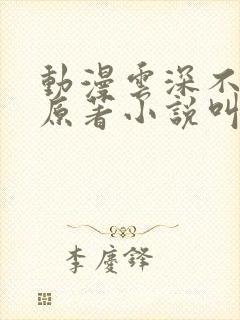 動漫雲深不
原著小說叫
李慶鋒